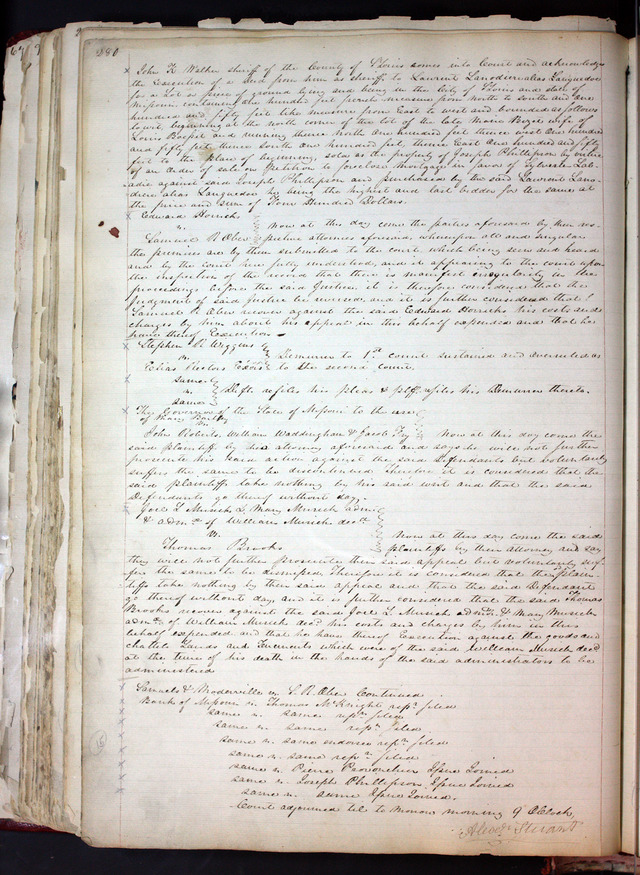 280
John K Walker sheriff of the County of St Louis comes into Court and acknowledges
the Execution of a Deed from him as sheriff to Laurent Lanodier alias Languedoc
for a Lot or piece of ground lying and being in the City of St Louis and state of
Missouri containing one hundred feet french measure from North to South and one
hundred and fifty feet like measure from East to West and bounded as follows
towit, beginning at the north corner of the lot of the City Marie wife of
Louis and running thence north One hundred feet thence west One hundred
and fifty feet thence south one hundred feet, thence East One hundred and fifty
feet to the place of beginning, sold as the property of Joseph Phillipson by virtue
of an Order of sale on Petition to foreclose Mortgage in favor of Sylvestre Lab-
adie against said Joseph Phillipson and purchased by the said Laurent Lano-
dier alias Languedoc he being the highest and last bidder for the same at
the price and sum of Four Hundred Dollars.
Edward Horrick
vs. Now at this day come the parties aforesaid by their res-
Samuel R Ober pective attornies aforesaid, whereupon all and singular
the premises are by them submitted to the court which being seen and heard
and by the court here fully understood, and it appearing to the court upon
the inspection of the record that there is manifest irregularity in the
proceedings before the said Justice, it is therefore considered that the
Judgment of said Justice be reversed and it is further considered that
Samuel R Ober recover against the said Edward Horrick his costs and
charges by him about his appeal in this behalf expended and that he
have thereof Execution
Stephen W. Wiggins
vs. Demurrer to 1st count sustained and overruled as
Elias Rectors Exors to the second count.
same
vs. Defts refiles his pleas & plff refiles his Demurrer thereto.
same
The Governor of the State of Missouri to the use
of Mary
vs.
John Roberts, William Waddingham & Jacob Fry Now at this day come the
said plaintiff by his attorney aforesaid and says he will not further
prosecute his base action against the said Defendants but voluntarily
suffers the same to be discontinued Therefore it is considered that the
said plaintiffs take nothing by his said writ and that the said
Defendants go thereof without day.
Joel L Musick & Mary Musick admr
& admx of William Musick decd
vs. Now at this day come the said
Thomas Brooks plaintiffs by their Attorney and say
they will not further prosecute their said appeal but voluntarily suf-
fer the same to be dismissed; Therefore it is considered that the Plain-
tiffs take nothing by their said appeal and that the said Defendant
go thereof without day, and it is further considered that the said Thomas
Brooks recover against the said Joel L Musick admr. & Mary Musick
admx of William Musick decd his costs and charges by him in this
behalf expended and that he have thereof Execution against the goods and
chattels Lands and Tenements which were of the said William Musick decd
at the time of his death in the hands of the said administrators to be
administered
Samuels & vs. S. R. Ober Continued
Bank of Missouri vs Thomas McKnight repn filed
same vs. same repn filed
same vs. same repn filed
same vs. same endorser repn filed
same vs. same repn filed
same vs. Pierre Provencher Issue Joined
same vs. Joseph Phillipson Issue Joined
same vs. same Issue Joined.
Court adjourned til to Morrow morning 9 O'Clock,
Alexr Stuart